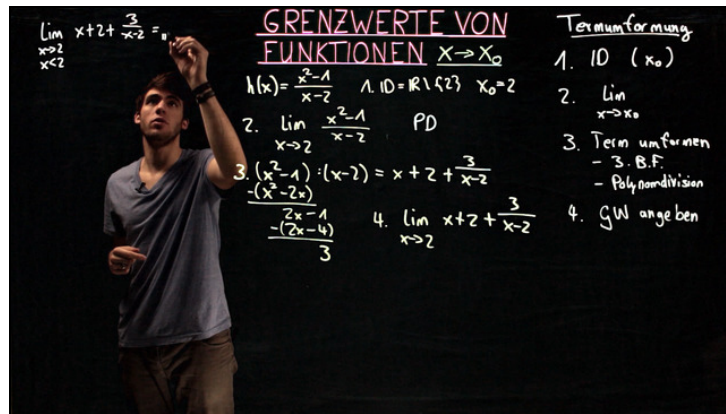 Lim x+2+ 3/x-2 = "
x→2
x<2
GRENZWERTE VON
FUNKTIONEN x→x₀
h(x)= x²-1/x-2 1. ID=IR\{2} x₀=2
2. Lim x²-1/x-2 PD
x→2
3. (x²-1):(x-2) = x+2+ 3/x-2
-(x²-2x)
2x-1
-(2x-4)
3
4. Lim x+2+ 3/x-2
x→2
Termumformung
1. ID (x₀)
2. Lim
x→x₀
3. Term umformen
- 3. B.F.
- Polynomdivision
4. GW angeben